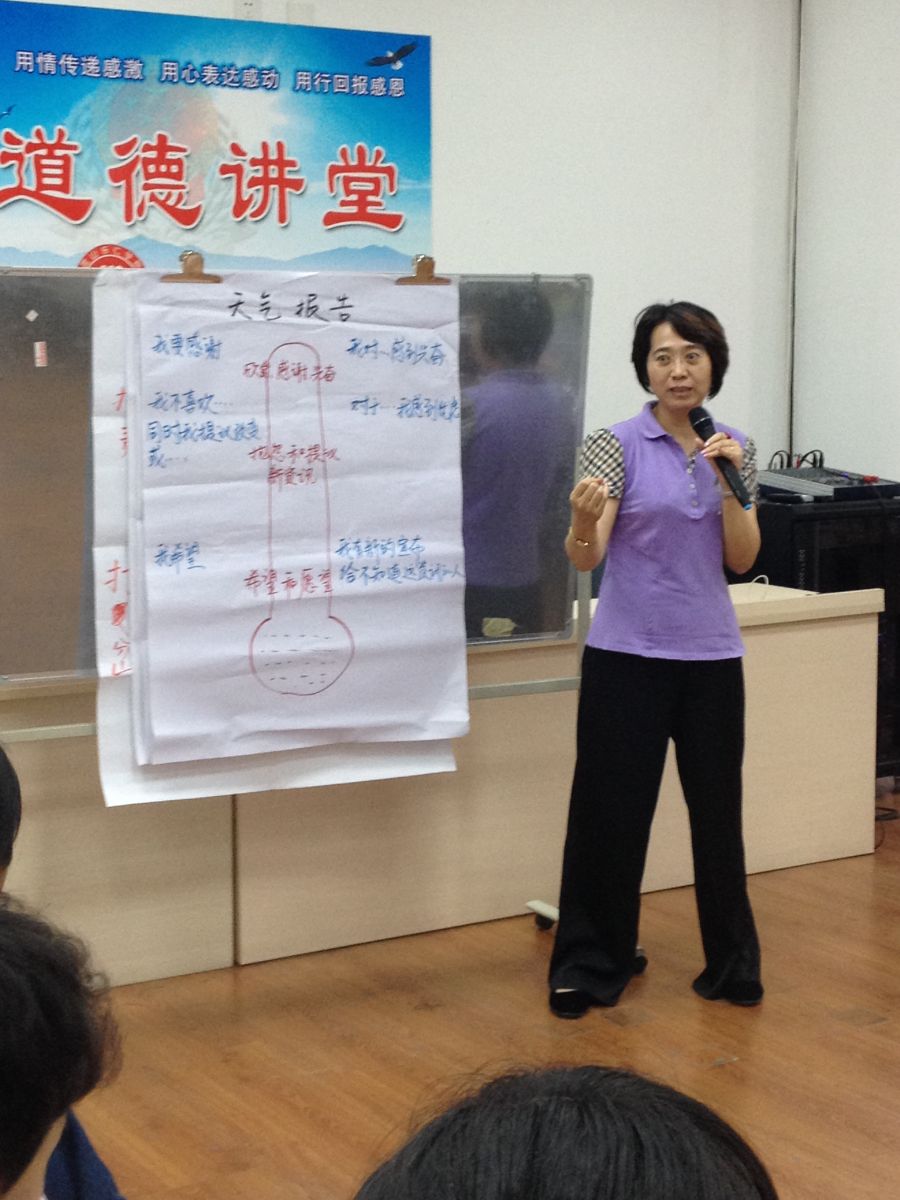 用情传递感激 用心表达感动 用行回报感恩
道德讲堂
天气报告
我要感谢
我对…感到兴奋
欣赏感谢兴奋
我不喜欢……
对于…我感到
同时我提议改变
或……
抱怨和提议
新资讯
我希望
我有新的宣布
给不知道这资讯的人
希望和愿望